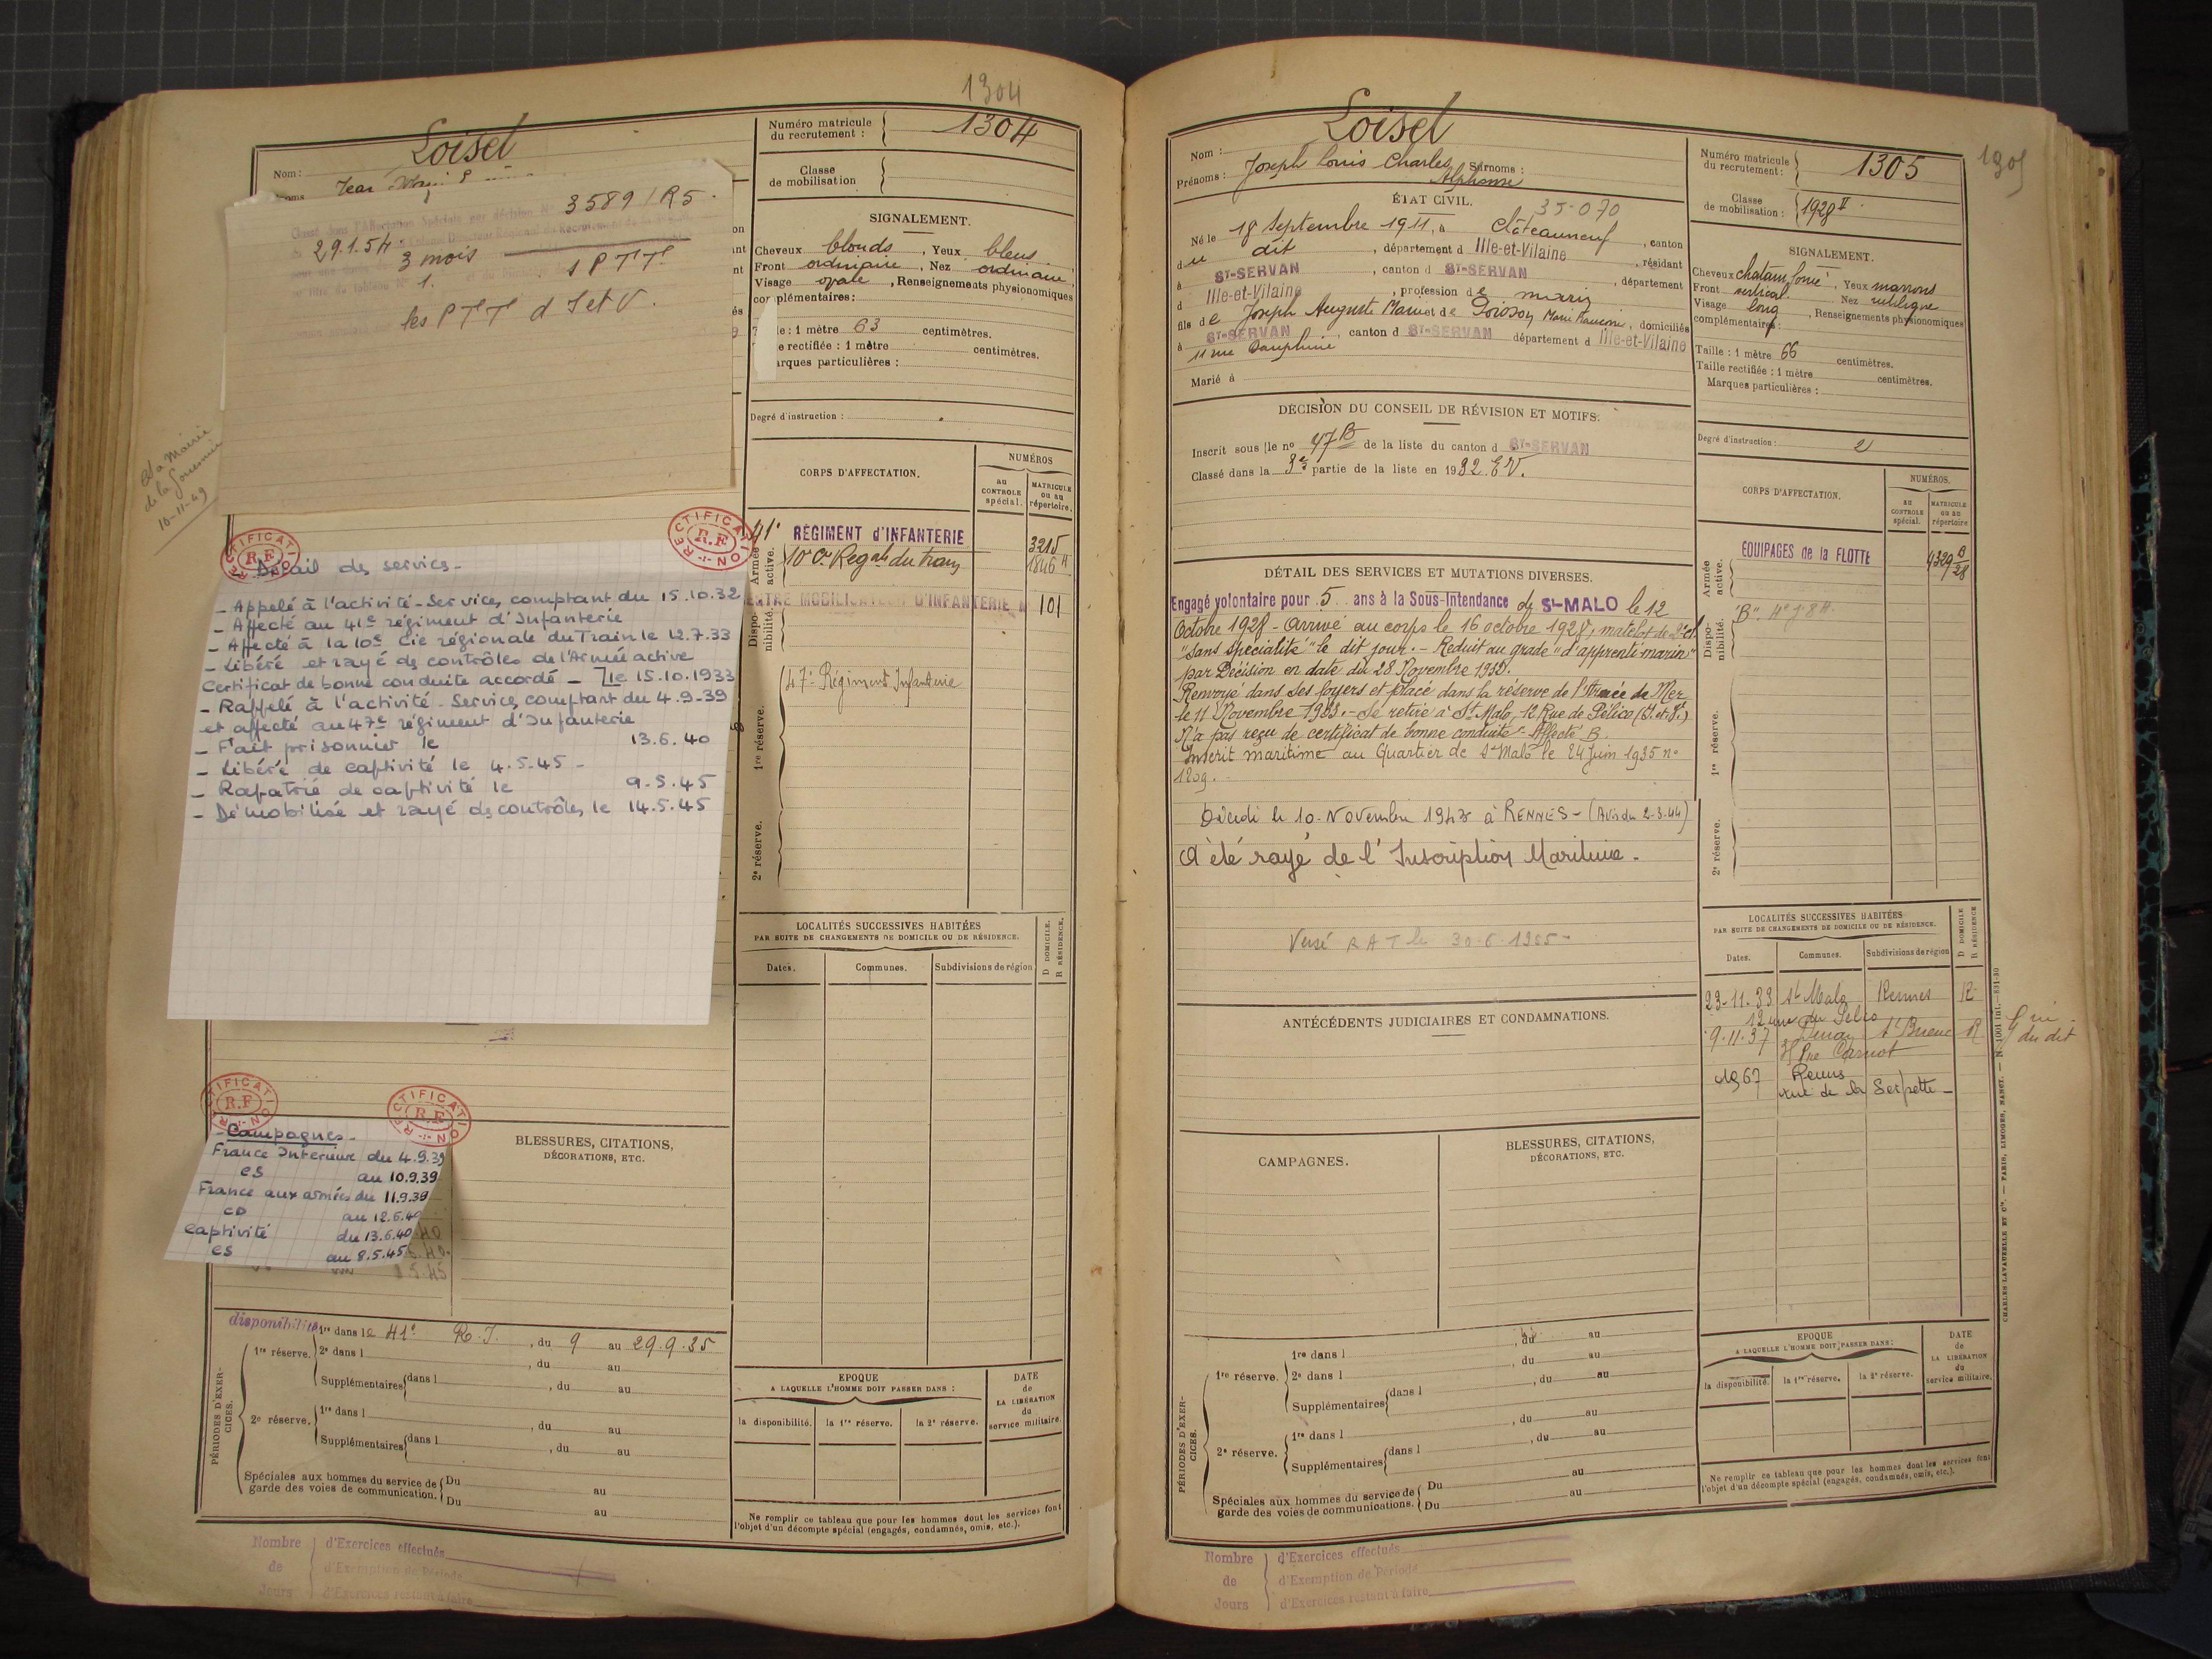 1304
Loisel
Nom :
Numéro matricule
du recrutement :
1304
Classe
de mobilisation
3589/R5.
29.1.54
3 mois
1 PTT
1.
les PTT d'I et V.
SIGNALEMENT.
Cheveux blonds, Yeux bleus
Front ordinaire, Nez ordinaire
Visage ovale, Renseignements physionomiques
complémentaires :
1 mètre 63 centimètres.
rectifiée : 1 mètre centimètres.
arques particulières :
Degré d'instruction :
CORPS D'AFFECTATION.
NUMÉROS
au
CONTROLE
spécial.
MATRICULE
ou au
répertoire.
La Mairie
de la Gouesnière
10-11-49
Armée
active.
41e RÉGIMENT d'INFANTERIE
3215
10e Cie Regale du train
1846
CENTRE MOBILISATEUR D'INFANTERIE N
101
Dispo-
nibilité.
47e Régiment Infanterie
1re réserve.
2e réserve.
RECTIFICATION
R.F
RECTIFICATION
R.F
Détail des services -
- Appelé à l'activité - Services comptant du 15.10.32
- Affecté au 41e régiment d'Infanterie
- Affecté à la 10e Cie régionale du Train le 12.7.33
- Libéré et rayé des contrôles de l'Armée active
Certificat de bonne conduite accordé - le 15.10.1933
- Rappelé à l'activité - Services comptant du 4.9.39
et affecté au 47e régiment d'Infanterie
- Fait prisonnier le 13.6.40
- Libéré de captivité le 4.5.45 -
- Rapatrié de captivité le 9.5.45
- Démobilisé et rayé des contrôles le 14.5.45
LOCALITÉS SUCCESSIVES HABITÉES
PAR SUITE DE CHANGEMENTS DE DOMICILE OU DE RÉSIDENCE.
D DOMICILE.
R RÉSIDENCE.
Dates.
Communes.
Subdivisions de région
RECTIFICATION
R.F
RECTIFICATION
R.F
- Campagnes -
France Intérieure du 4.9.39
CS au 10.9.39
France aux armées du 11.9.39
CD au 12.6.40
Captivité du 13.6.40
CS au 8.5.45
8.5.45
BLESSURES, CITATIONS,
DÉCORATIONS, ETC.
PÉRIODES D'EXER-
CICES.
disponibilité
1re dans le 41e R.I., du 9 au 29.9.35
1re réserve.
2e dans l , du au
Supplémentaires dans l , du au
2e réserve.
1re dans l , du au
Supplémentaires dans l , du au
Spéciales aux hommes du service de
garde des voies de communication.
Du au
Du au
EPOQUE
A LAQUELLE L'HOMME DOIT PASSER DANS :
DATE
de
LA LIBÉRATION
du
service militaire.
la disponibilité.
la 1re réserve.
la 2e réserve.
Ne remplir ce tableau que pour les hommes dont les services font
l'objet d'un décompte spécial (engagés, condamnés, omis, etc.).
Nombre
de
Jours
d'Exercices effectués
d'Exemption de Période
d'Exercices restant à faire
Loisel
Nom :
Prénoms : Joseph Louis Charles Surnoms :
Alphonse
Numéro matricule
du recrutement :
1305
1305
Classe
de mobilisation :
1928 II
ÉTAT CIVIL.
35-070
Né le 18 Septembre 1911, à Châteauneuf, canton
du dit, département d Ille-et-Vilaine, résidant
à ST-SERVAN, canton d ST-SERVAN, département
d Ille-et-Vilaine, profession de marin
fils de Joseph Auguste Marie et de Poisson Marie Françoise, domiciliés
à ST-SERVAN, canton d ST-SERVAN département d Ille-et-Vilaine
11 rue Dauphine
Marié à
SIGNALEMENT.
Cheveux chatain foncé, Yeux marrons
Front vertical Nez rectiligne
Visage long, Renseignements physionomiques
complémentaires :
Taille : 1 mètre 66 centimètres.
Taille rectifiée : 1 mètre centimètres.
Marques particulières :
Degré d'instruction : 2
DÉCISION DU CONSEIL DE RÉVISION ET MOTIFS.
Inscrit sous le no 47B de la liste du canton d ST-SERVAN
Classé dans la 3e partie de la liste en 1932. E.V.
CORPS D'AFFECTATION.
NUMÉROS.
au
CONTROLE
spécial.
MATRICULE
ou au
répertoire
Armée
active.
EQUIPAGES de la FLOTTE
4329 B
28
Dispo-
nibilité.
1re réserve.
2e réserve.
DÉTAIL DES SERVICES ET MUTATIONS DIVERSES.
Engagé volontaire pour 5 ans à la Sous-Intendance de St-MALO le 12
Octobre 1928 - Arrivé au corps le 16 octobre 1928, matelot de 2e cl
"sans spécialité" le dit jour. - Réduit au grade "d'apprenti marin"
par Décision en date du 28 Novembre 1930.
Renvoyé dans ses foyers et placé dans la réserve de l'Armée de Mer
le 11 Novembre 1933. - Se retire à St Malo, 12 Rue de Pélico (I. et V.)
N'a pas reçu de certificat de bonne conduite - Affecté B.
Inscrit maritime au Quartier de St Malo le 24 Juin 1935 no
1209.
Décédé le 10 Novembre 1943 à RENNES - (Avis du 2-3-44)
A été rayé de l'Inscription Maritime.
Versé RAT le 30.6.1965 -
ANTÉCÉDENTS JUDICIAIRES ET CONDAMNATIONS.
LOCALITÉS SUCCESSIVES HABITÉES
PAR SUITE DE CHANGEMENTS DE DOMICILE OU DE RÉSIDENCE.
D DOMICILE
R RÉSIDENCE
Dates.
Communes.
Subdivisions de région
23-11-33 St Malo Rennes R
12 rue du Pélico
9.11.37 Dinan St Brieuc R
Rue Carnot
1967 Rennes
rue de la Serpette -
du dit
CAMPAGNES.
BLESSURES, CITATIONS,
DÉCORATIONS, ETC.
PÉRIODES D'EXER-
CICES.
1re réserve.
1re dans l , du au
2e dans l , du au
Supplémentaires dans l , du au
2e réserve.
1re dans l , du au
Supplémentaires dans l
Spéciales aux hommes du service de
garde des voies de communications.
Du au
Du au
EPOQUE
A LAQUELLE L'HOMME DOIT PASSER DANS :
DATE
de
LA LIBÉRATION
du
service militaire.
la disponibilité.
la 1re réserve.
la 2e réserve.
Ne remplir ce tableau que pour les hommes dont les services font
l'objet d'un décompte spécial (engagés, condamnés, omis, etc.).
CHARLES-LAVAUZELLE ET Cie. — PARIS, LIMOGES, NANCY. — N. 1001 Int.—631-30
Nombre
de
Jours
d'Exercices effectués
d'Exemption de Période
d'Exercices restant à faire